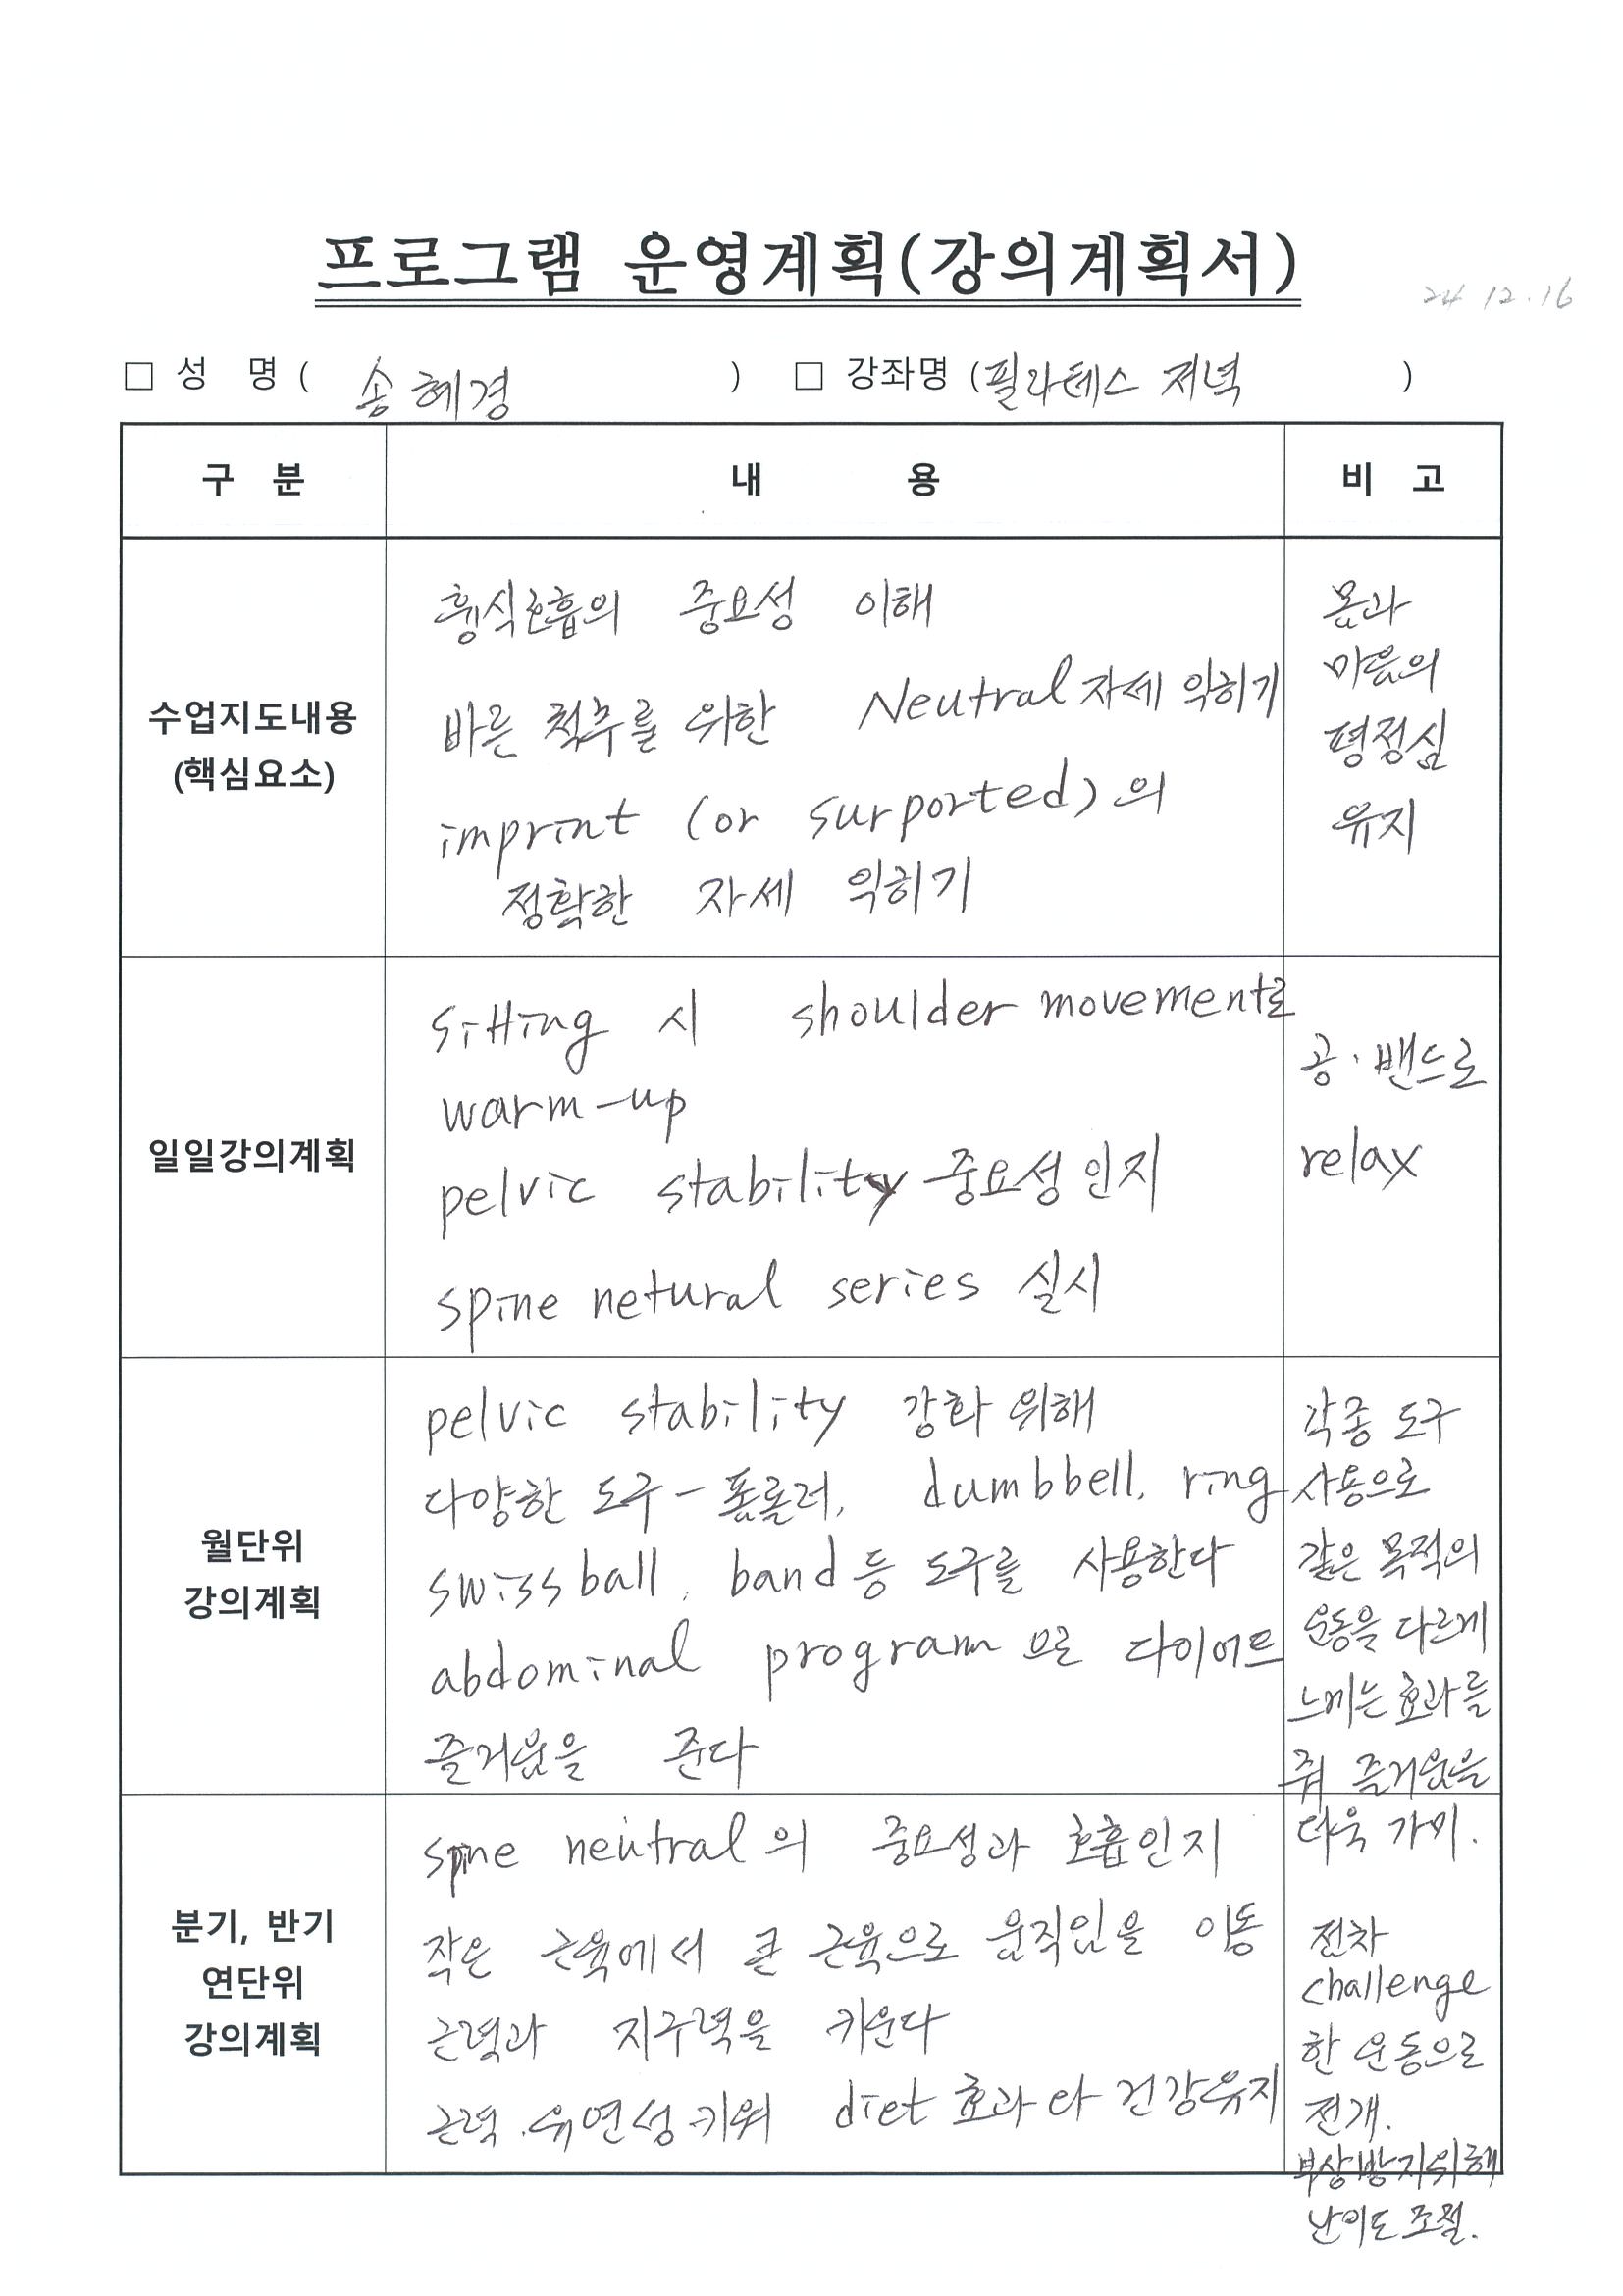 프로그램 운영계획(강의계획서)
24 12.16
□ 성 명 ( 송혜경 ) □ 강좌명 (필라테스 저녁 )
구 분
내 용
비 고
수업지도내용
(핵심요소)
흉식호흡의 중요성 이해
바른 척추를 위한 Neutral 자세 익히기
imprint (or surported)의
정확한 자세 익히기
몸과
마음의
평정심
유지
일일강의계획
sitting 시 shoulder movement로
warm-up
pelvic stability 중요성 인지
spine netural series 실시
공·밴드로
relax
월단위
강의계획
pelvic stability 강화 위해
다양한 도구 - 폼롤러, dumbbell, ring
swiss ball, band 등 도구를 사용한다
abdominal program 으로 다이어트
즐거움을 준다
각종 도구
사용으로
같은 목적의
운동을 다르게
느끼는 효과를
줘 즐거움을
더욱 가미.
분기, 반기
연단위
강의계획
spine neutral의 중요성과 호흡인지
작은 근육에서 큰 근육으로 움직임을 이동
근력과 지구력을 키운다
근력.유연성 키워 diet 효과와 건강유지
전차
challenge
한 운동으로
전개.
부상방지위해
난이도 조절.